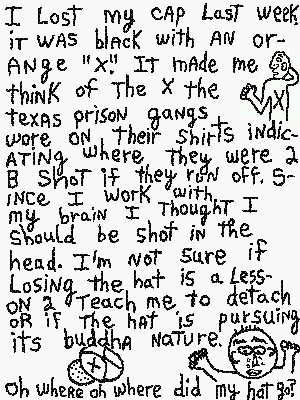 I Lost my CAP Last week
it WAS black with AN or-
ANge "X". It mAde me
think of The X the
texas prison gangs
wore on their shirts indic-
Ating where they were 2
B Shot if they run off. S-
ince I work with
my brain I thought I
should be shot in the
head. I'm not sure if
Losing the hat is a Less-
on 2 Teach me to detach
or if the hat is pursuing
its buddha nature.
oh where oh where did my hat go?